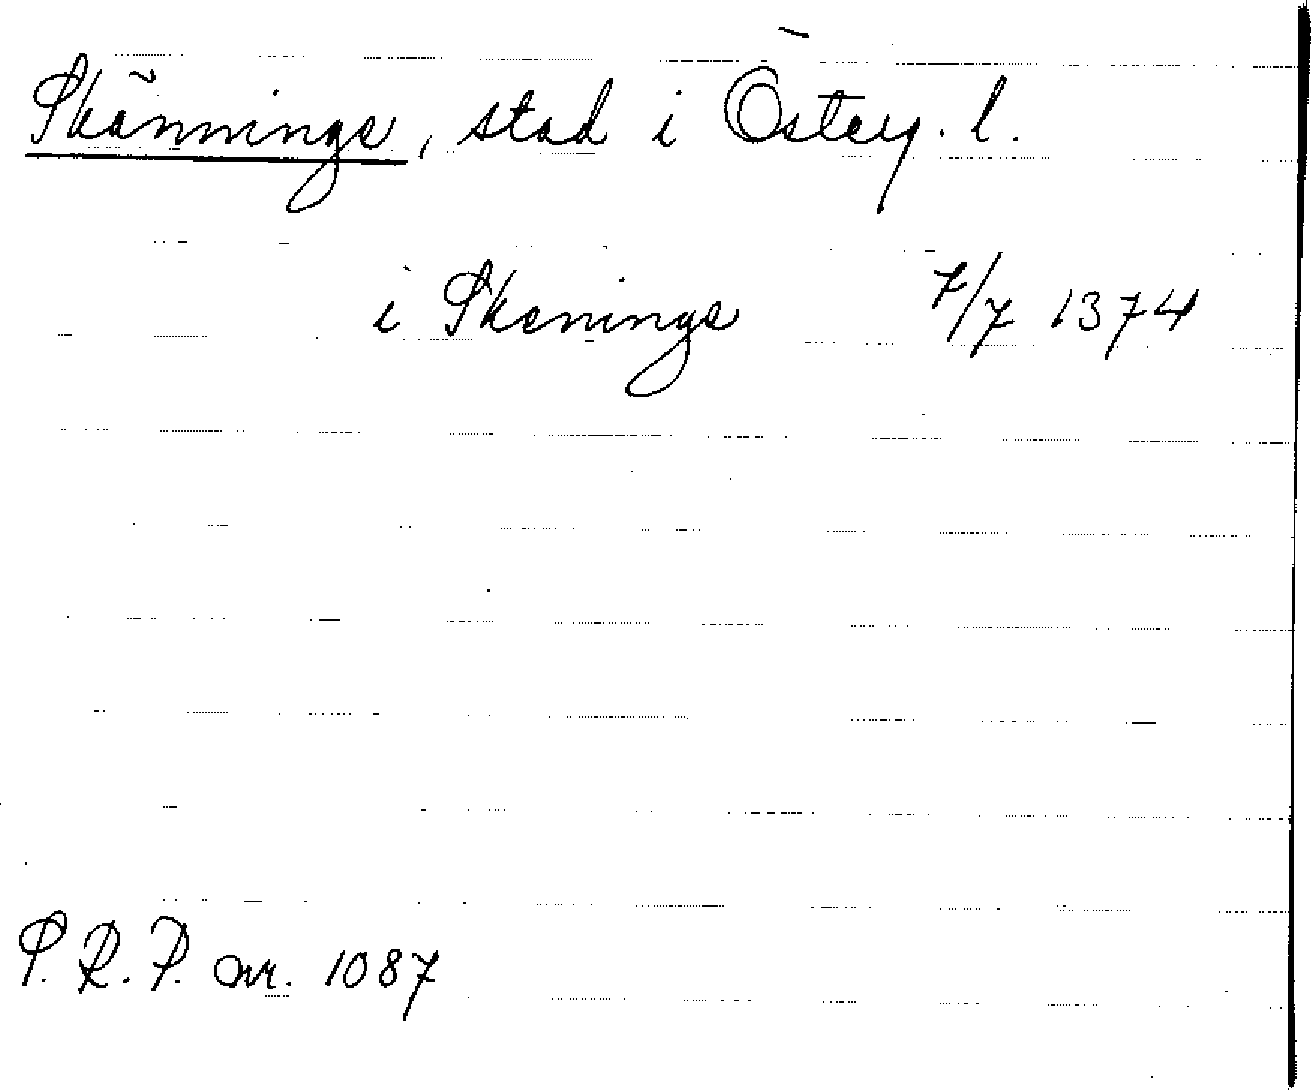 Skänninge, stad i Österg. l.
i Skeninge 7/7 1374
P. R. P. avr. 1087